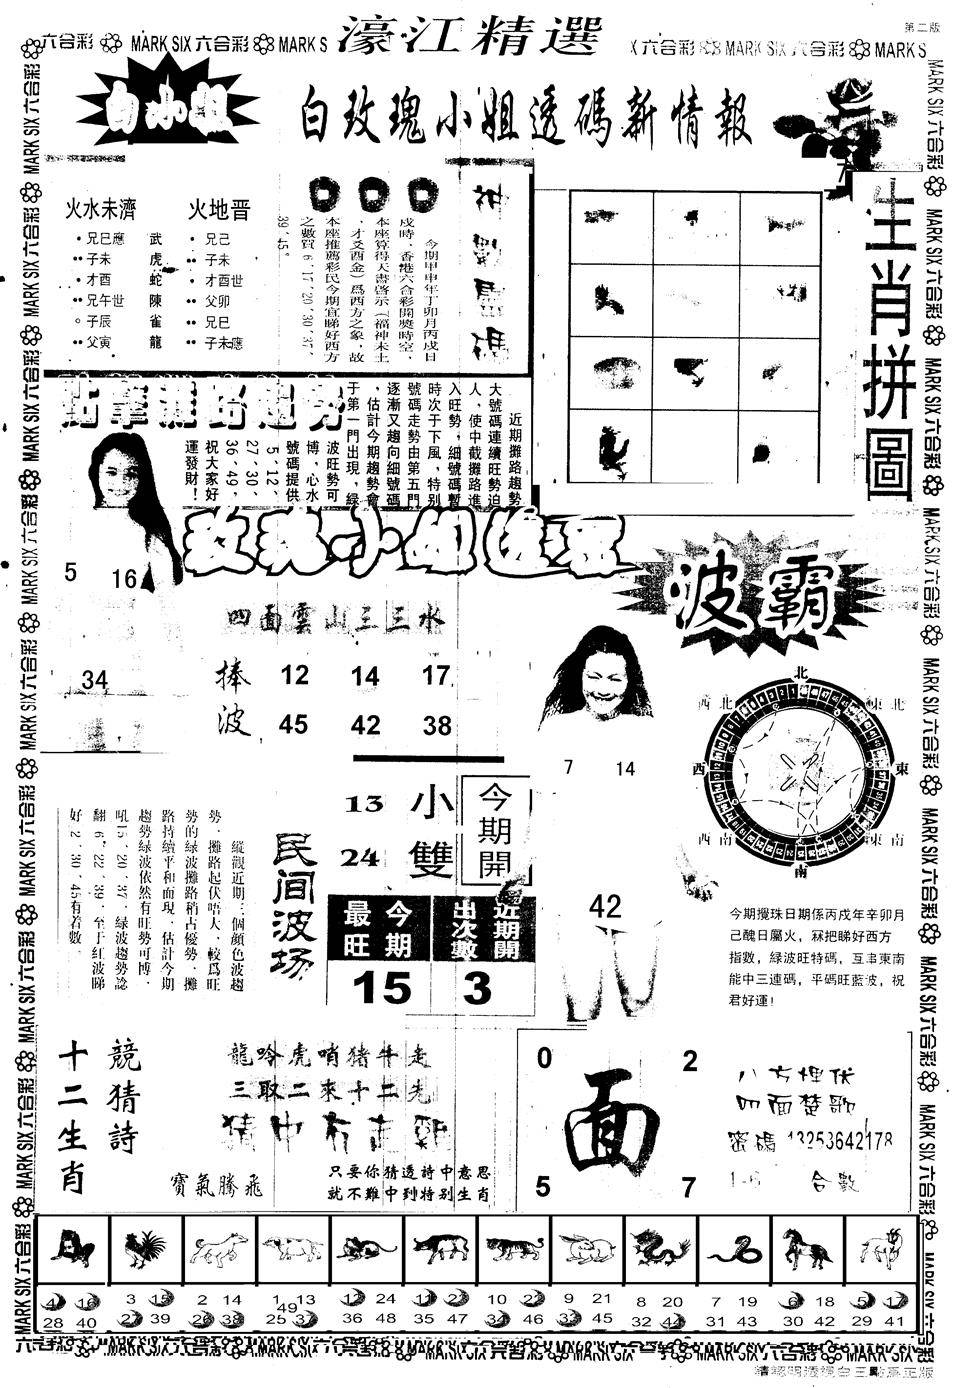 濠江精選
第二版
六合彩 MARK SIX 六合彩 MARK S
X 六合彩 MARK SIX 六合彩 MARK S
白小姐
白玫瑰小姐透碼新情報
火水未濟
兄巳應
子未
才酉
兄午世
子辰
父寅
武
虎
蛇
陳
雀
龍
火地晋
兄己
子未
才酉世
父卯
兄巳
子未應
今期甲申年丁卯月丙戌日
戌時,香港六合彩開獎時空,
本座算得天書啓示(福神未土
,才爻酉金)爲西方之象,故
本座推薦彩民今期宜睇好西方
之數買6、17、20、30、37、
39、45。
生肖拼圖
近期攤路趨勢
大號碼連續旺勢迫
人,使中截攤路進
入旺勢;細號碼暫
時次于下風,特別
號碼走勢由第五門
逐漸又趨向細號碼
,估計今期趨勢會
于第一門出現,綠
波旺勢可
博,心水
號碼提供
5、12、
27、30、
36、49,
祝大家好
運發財!
5 16
34
四面雲山三三水
捧波
12 14 17
45 42 38
波霸
7 14
42
北
東北
東
東南
南
西南
西
西北
縱觀近期三個顏色波趨
勢,攤路起伏唔人,較爲旺
勢的绿波攤路稍占優勢,攤
路持續平和面現,估計今期
趨勢緑波依然有旺勢可博,
吼15、20、37,绿波趨勢諗
翻6、22、39,至于红波睇
好2、30、45有着數。
民间波场
13 小
24 雙
今期開
今期最旺
近期開出次數
15 3
今期攪珠日期係丙戌年辛卯月
己醜日屬火,冧把睇好西方
指數,緑波旺特碼,互串東南
能中三連碼,平碼旺藍波,祝
君好運!
十二生肖
競猜詩
龍吟虎哨猪牛走
三取二來十二先
猜中有
寶氣騰飛
只要你猜透詩中意思
就不難中到特别生肖
0 2
面
5 7
八方埋伏
四面楚歌
密碼 13253642178
1-6 合數
4 16 28 40
3 15 27 39
2 14 26 38
1 13 49 25 37
12 24 36 48
11 23 35 47
10 22 34 46
9 21 33 45
8 20 32 44
7 19 31 43
6 18 30 42
5 17 29 41